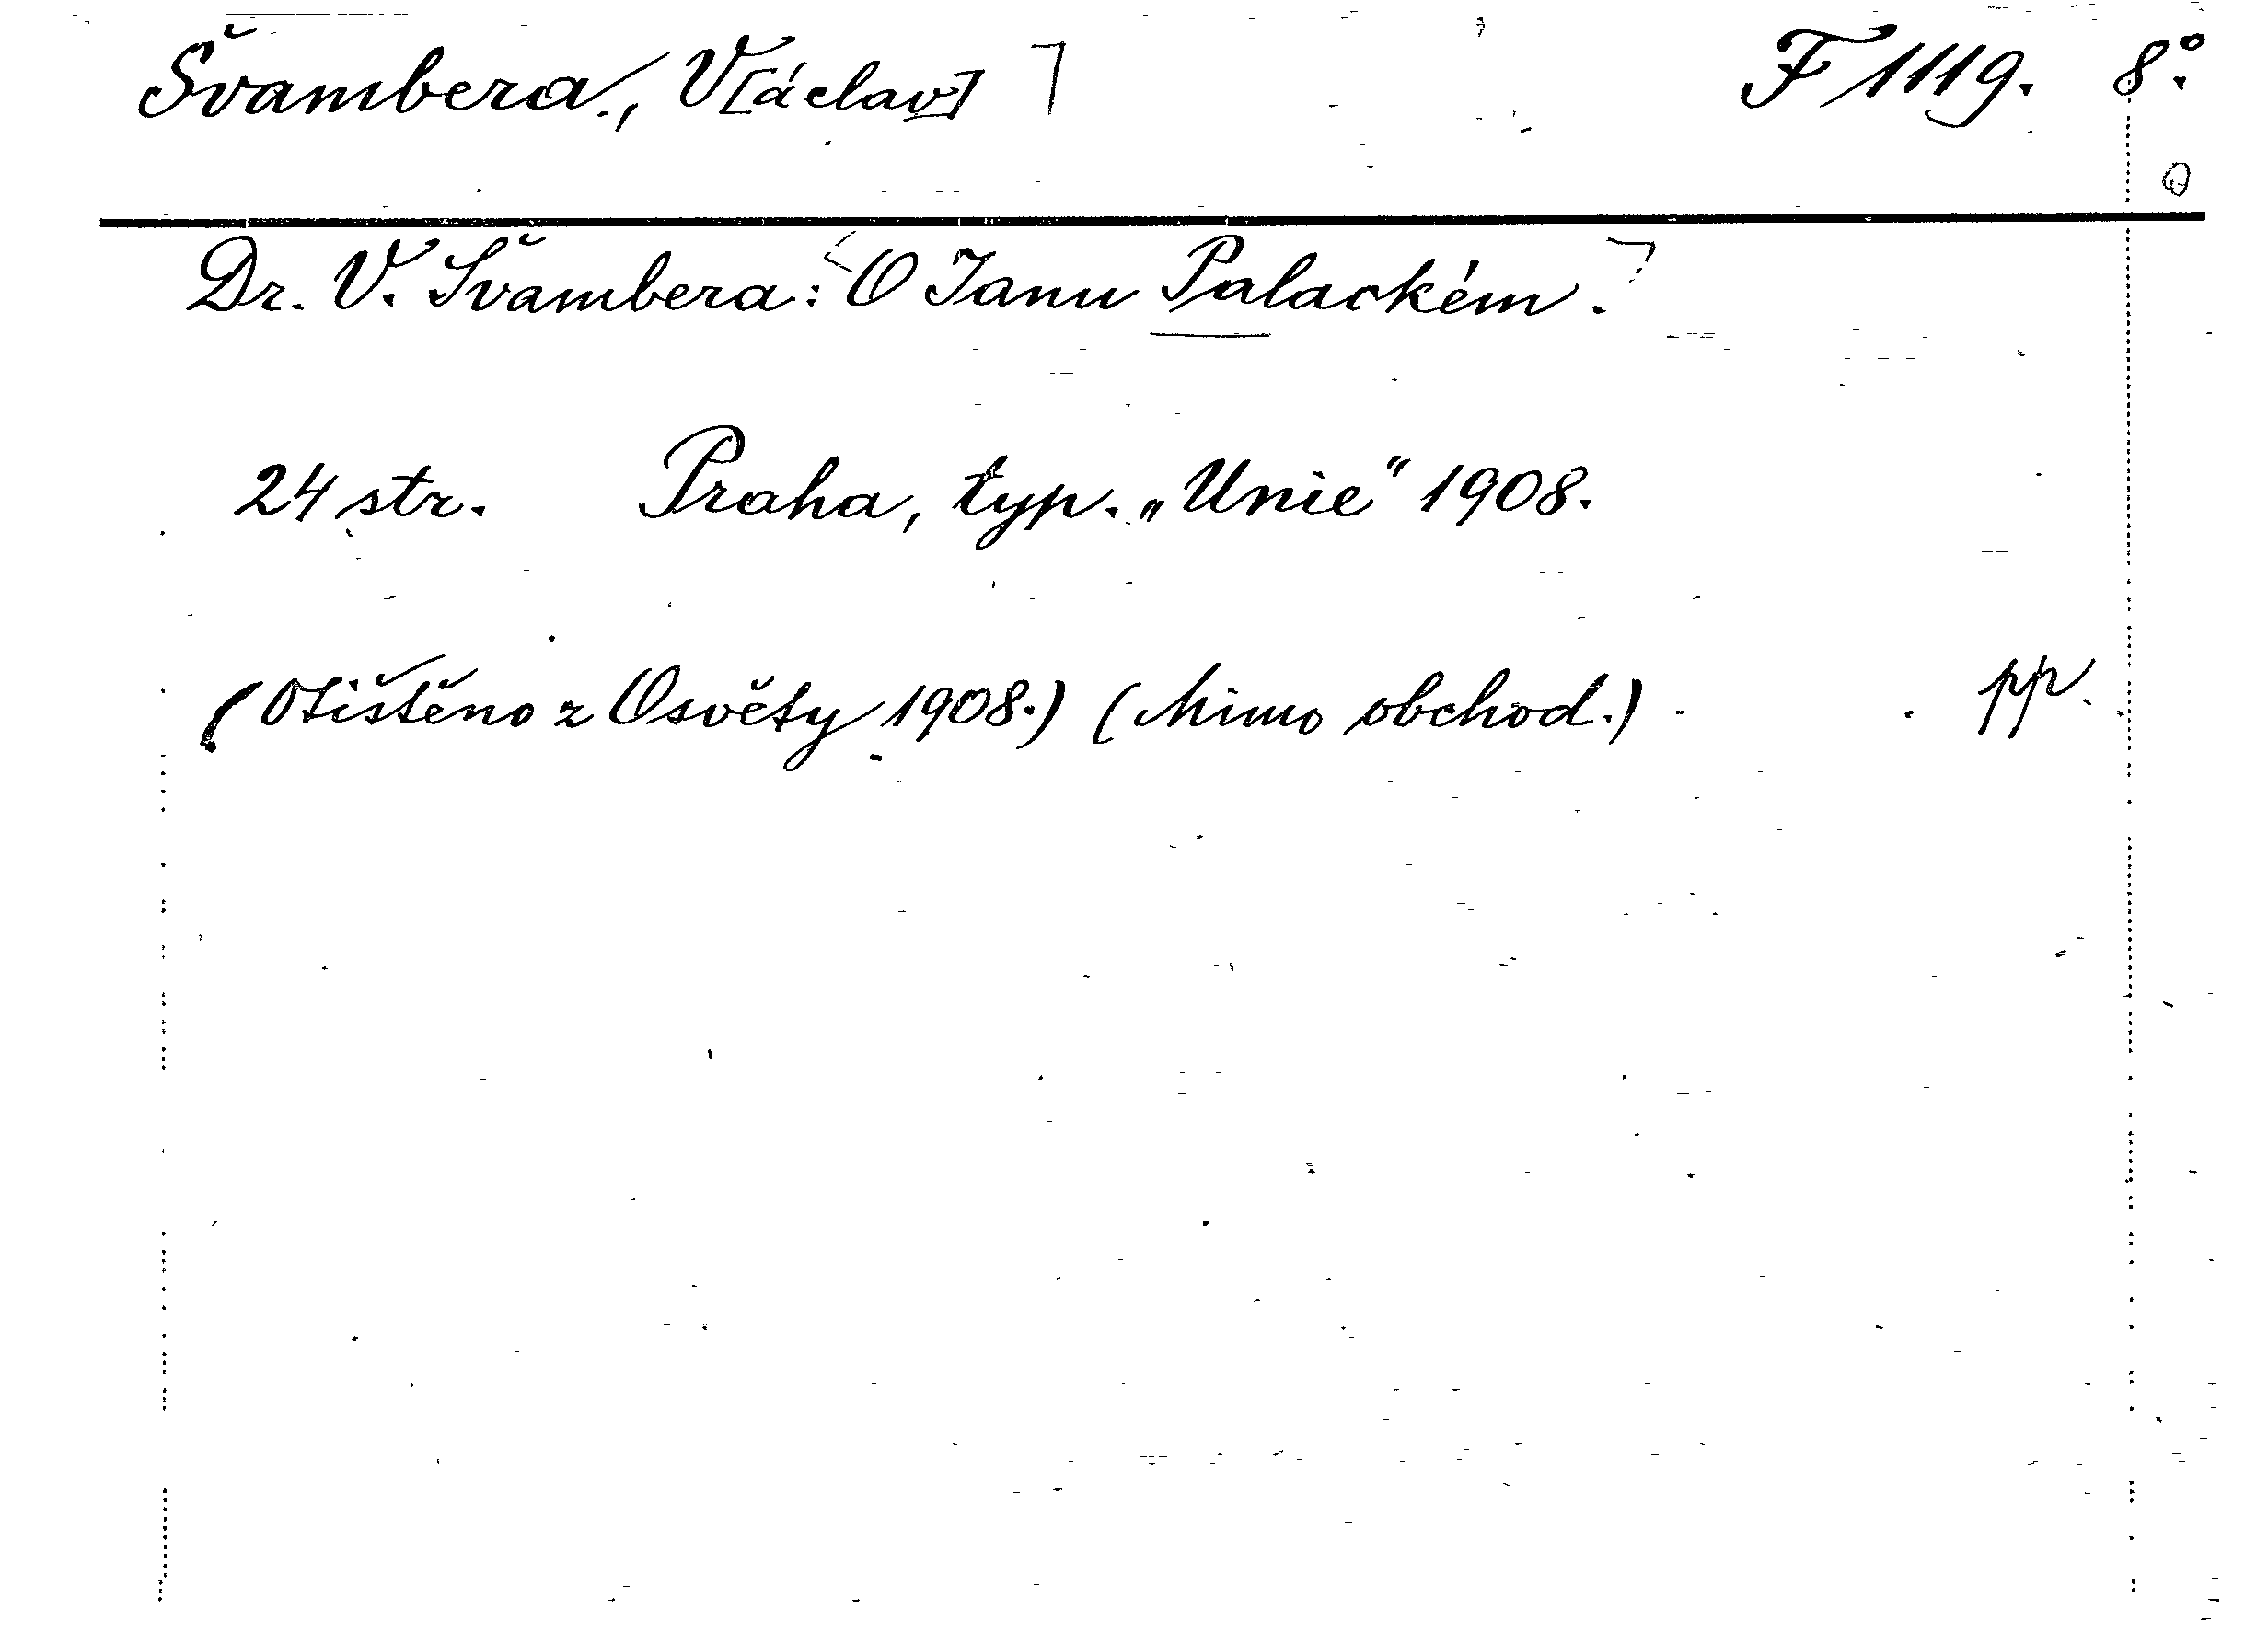 Švambera, V[áclav] F 1119. 8°.
Dr. V. Švambera: O Janu Palackém.
24 str. Praha, typ. „Unie“ 1908.
(Otištěno z Osvěty 1908.) (Mimo obchod.) pp.